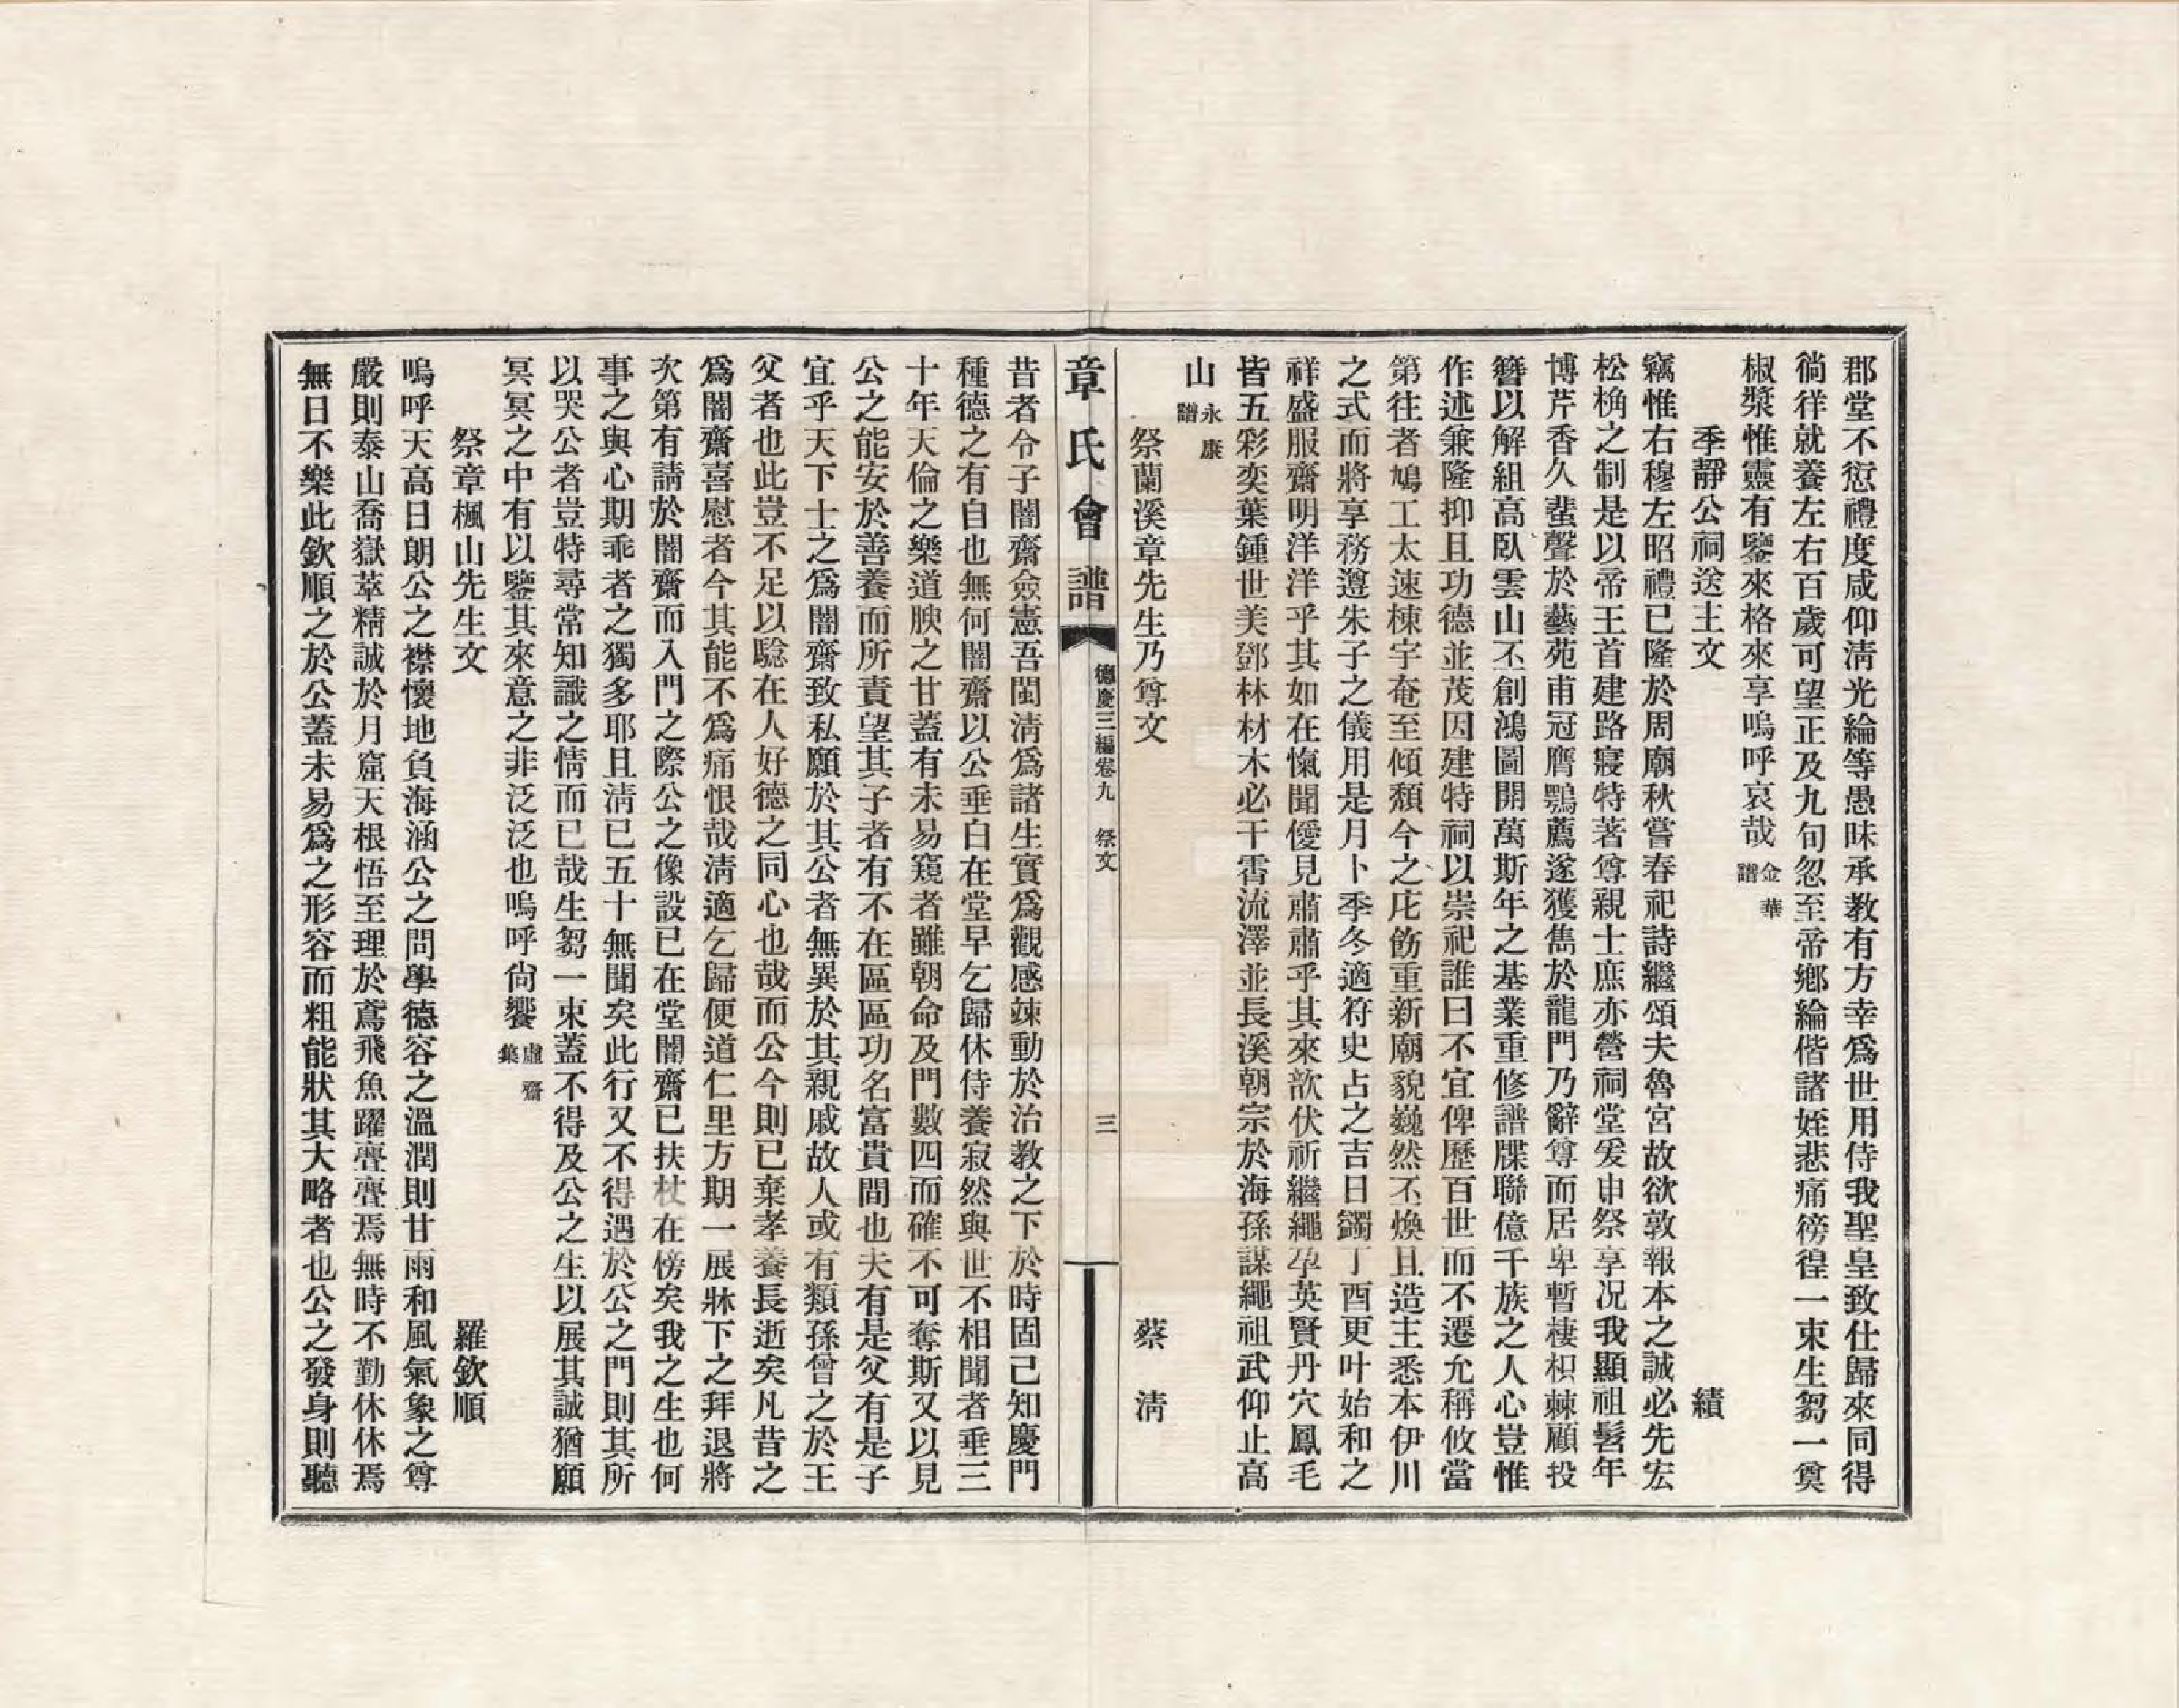 郡堂不愆禮度咸仰淸光綸等愚昧承教有方幸爲世用侍我聖皇致仕歸來同得
徜徉就養左右百歲可望正及九旬忽至帝鄕綸偕諸姪悲痛徬徨一束生芻一奠
椒漿惟靈有鑒來格來享嗚呼哀哉金華譜
季靜公祠送主文 績
竊惟右穆左昭禮已隆於周廟秋嘗春祀詩繼頌夫魯宮故欲敦報本之誠必先宏
松桷之制是以帝王首建路寢特著尊親士庶亦營祠堂爰申祭享况我顯祖髫年
博芹香久蜚聲於藝苑甫冠膺鶚薦遂獲雋於龍門乃辭尊而居卑暫棲枳棘顧投
簪以解組高臥雲山丕創鴻圖開萬斯年之基業重修譜牒聯億千族之人心豈惟
作述兼隆抑且功德並茂因建特祠以崇祀誰曰不宜俾歷百世而不遷允稱攸當
第往者鳩工太速棟宇奄至傾頽今之庀飭重新廟貌巍然丕煥且造主悉本伊川
之式而將享務遵朱子之儀用是月卜季冬適符史占之吉日蠲丁酉更叶始和之
祥盛服齋明洋洋乎其如在愾聞僾見肅肅乎其來歆伏祈繼繩孕英賢丹穴鳳毛
皆五彩奕葉鍾世美鄧林材木必干霄流澤並長溪朝宗於海孫謀繩祖武仰止高
山永康譜
祭蘭溪章先生乃尊文 蔡淸
章氏會譜 德慶三編卷九 祭文 三
昔者令子闇齋僉憲吾閩淸爲諸生實爲觀感竦動於治教之下於時固已知慶門
種德之有自也無何闇齋以公垂白在堂早乞歸休侍養寂然與世不相聞者垂三
十年天倫之樂道腴之甘蓋有未易窺者雖朝命及門數四而確不可奪斯又以見
公之能安於善養而所責望其子者有不在區區功名富貴間也夫有是父有是子
宜乎天下士之爲闇齋致私願於其公者無異於其親戚故人或有類孫曾之於王
父者也此豈不足以騐在人好德之同心也哉而公今則已棄孝養長逝矣凡昔之
爲闇齋喜慰者今其能不爲痛恨哉淸適乞歸便道仁里方期一展牀下之拜退將
次第有請於闇齋而入門之際公之像設已在堂闇齋已扶杖在傍矣我之生也何
事之與心期乖者之獨多耶且淸已五十無聞矣此行又不得遇於公之門則其所
以哭公者豈特尋常知識之情而已哉生芻一束蓋不得及公之生以展其誠猶願
冥冥之中有以鑒其來意之非泛泛也嗚呼尙饗虛齋集
祭章楓山先生文 羅欽順
嗚呼天高日朗公之襟懷地負海涵公之問學德容之溫潤則甘雨和風氣象之尊
嚴則泰山喬嶽萃精誠於月窟天根悟至理於鳶飛魚躍亹亹焉無時不勤休休焉
無日不樂此欽順之於公蓋未易爲之形容而粗能狀其大略者也公之發身則聽